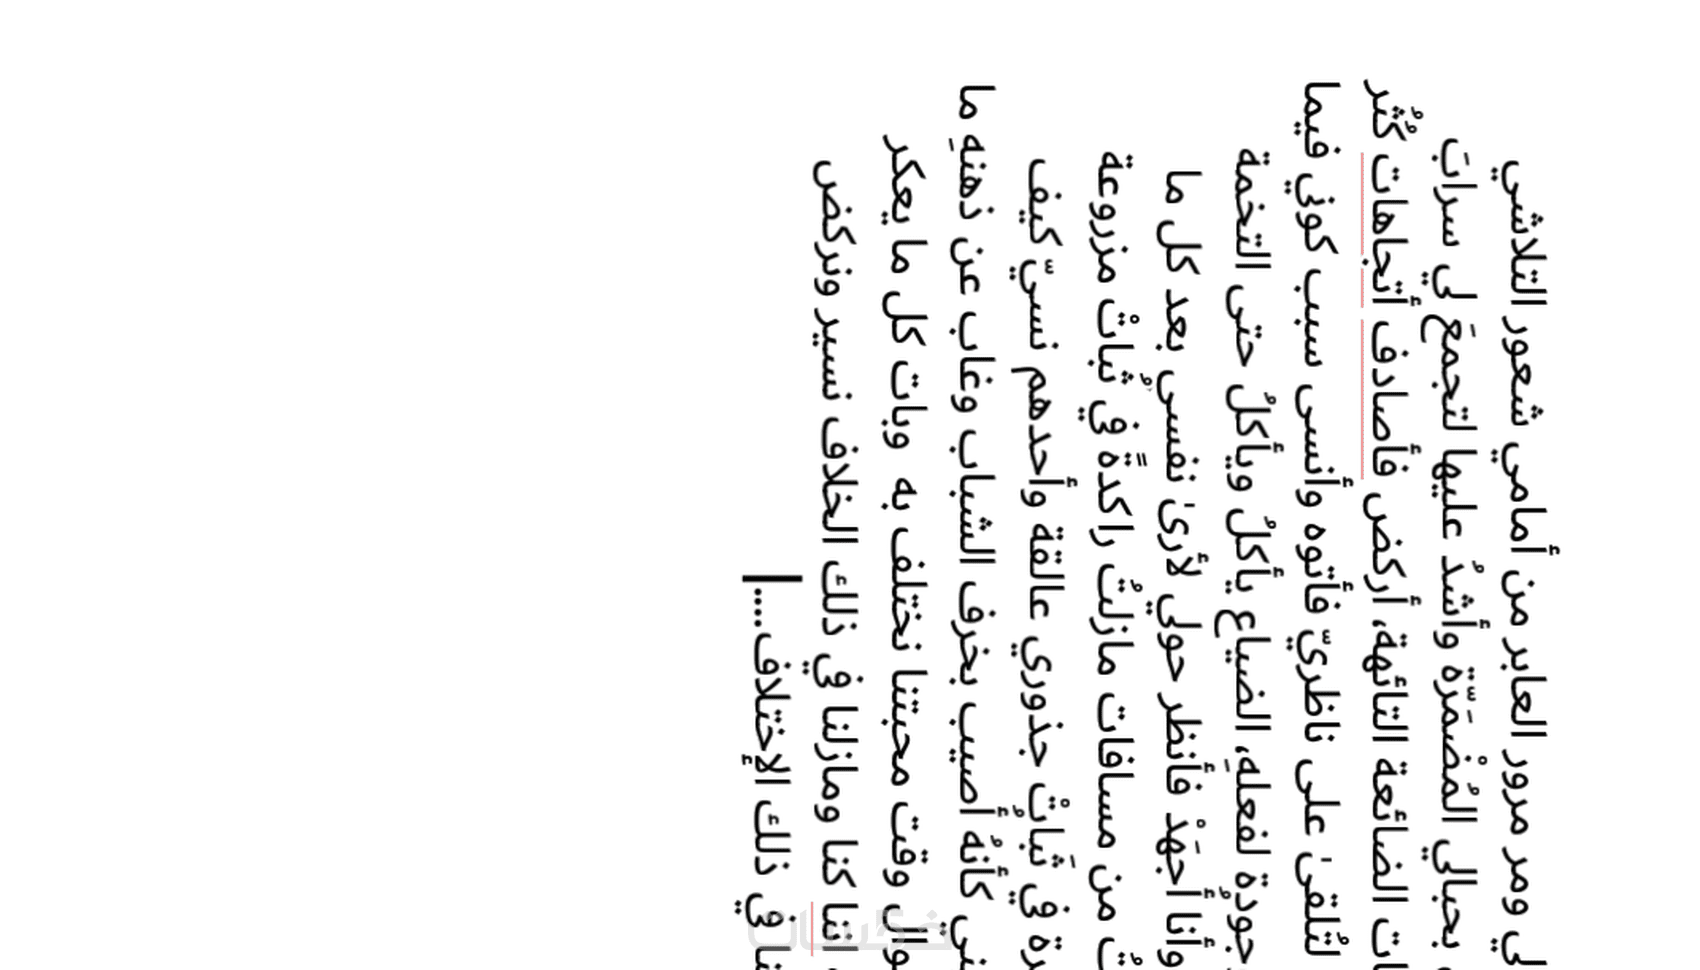 ومر مرور العابر من أمامي شعور التلاشي
بحبالي المُضْمَرّة وأشدُ عليها لتجمعَ لي سرابَ
الضائعة التائهة، أركض فأصادف أتجاهات كُثُر
على ناظريّ فأتوه وأنسى سبب كوني فيما
لفعلهَ، الضياع يأكلُ ويأكلُ حتى التخمة
وأنا أُجهَدْ فأنظر حولي لأرىٰ نفسي بعد كل ما
من مسافات مازلتُ راكدةً في ثُباتْ مزروعة
في ثَباتْ جذوري عالقة وأحدهم نسيّ كيف
كأنهُ أُصيب بخرف الشباب وغاب عن ذهنهِ ما
وقت محبتنا نختلف به وبات كل ما يعكر
كنا ومازلنا في ذلك الخلاف نسير ونركض
في ذلك الإختلاف....
خمسات